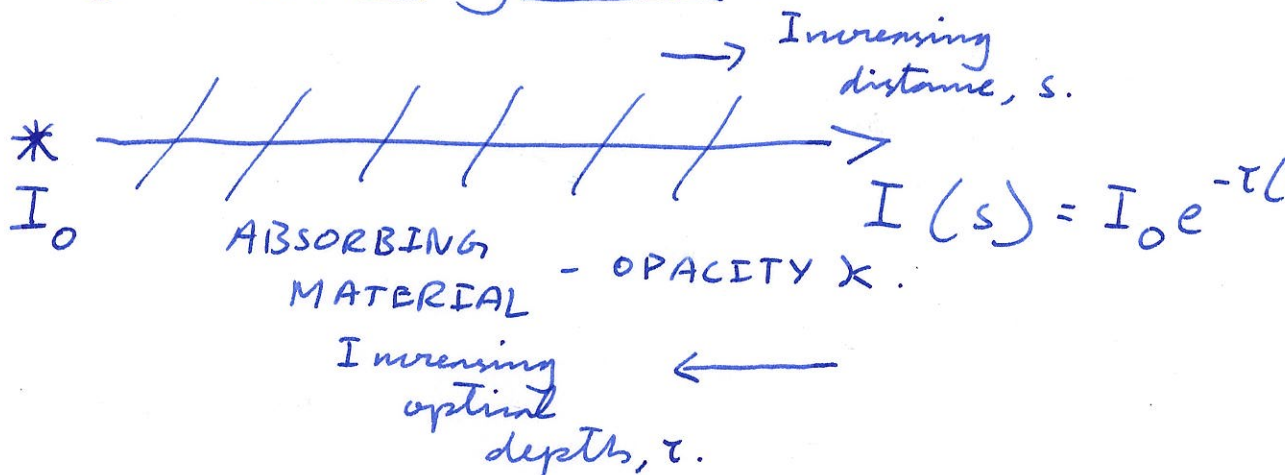 Increasing
distance, s.
*
I₀
I (s) = I₀ e^{-τ(
ABSORBING
MATERIAL - OPACITY κ.
Increasing
optical
depth, τ.